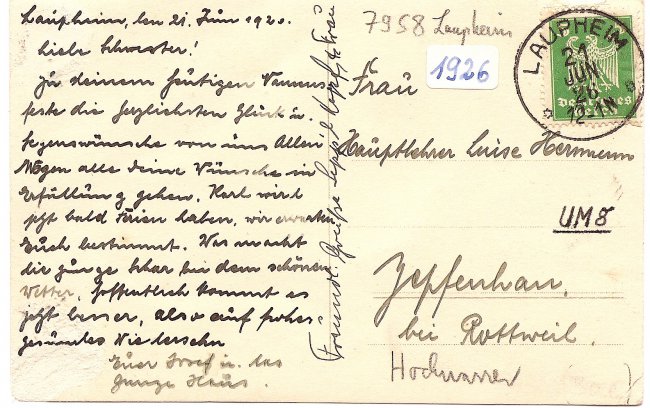 Laupheim, den 21. Juni 1926.
Liebe Schwester!
Zu deinem heutigen Namens-
feste die herzlichsten Glück u.
Segenswünsche von uns Allen
Mögen alle deine Wünsche in
Erfüllung gehen. Karl wird
jetzt bald Ferien haben, wir erwarten
Euch bestimmt. Was macht
die junge bei dem schönen
Wetter, hoffentlich kommt es
jetzt besser, also auf frohes
gesundes Wiedersehn
Euer Josef u. das
ganze Haus.
Freundl. Grüße Frau
7958 Laupheim
1926
LAUPHEIM
21
JUN
26
12-1N
Frau
Hauptlehrer Luise Herrmann
UM 8
Zepfenhan.
bei Rottweil.
Hochwasser